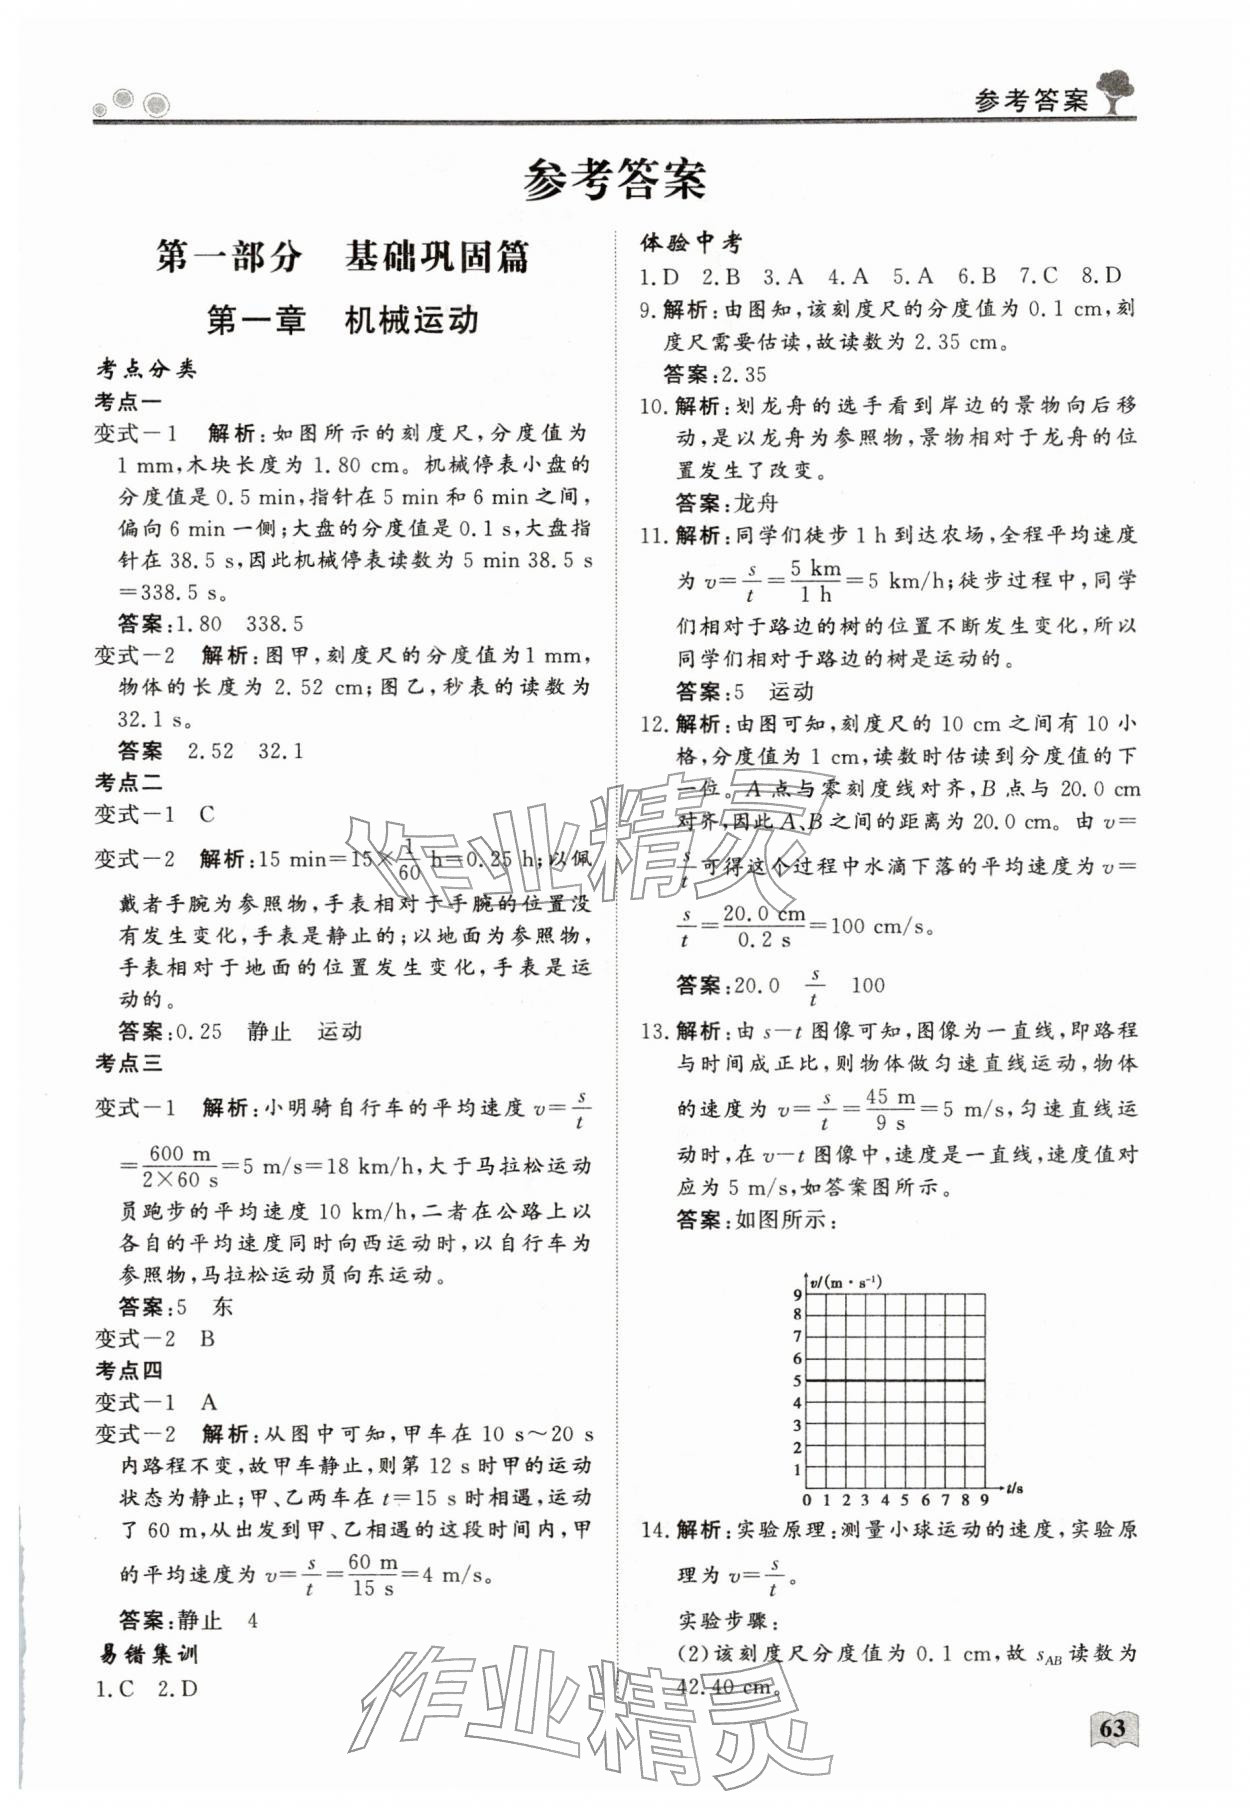 参考答案
参考答案
第一部分　基础巩固篇
第一章　机械运动
考点分类
考点一
变式－1　解析:如图所示的刻度尺,分度值为
1 mm,木块长度为 1.80 cm。机械停表小盘的
分度值是 0.5 min,指针在 5 min 和 6 min 之间,
偏向 6 min 一侧;大盘的分度值是 0.1 s,大盘指
针在 38.5 s,因此机械停表读数为 5 min 38.5 s
=338.5 s。
答案:1.80　338.5
变式－2　解析:图甲,刻度尺的分度值为1 mm,
物体的长度为 2.52 cm;图乙,秒表的读数为
32.1 s。
答案　2.52　32.1
考点二
变式－1　C
变式－2　解析:15 min=15×1/60 h=0.25 h;以佩
戴者手腕为参照物,手表相对于手腕的位置没
有发生变化,手表是静止的;以地面为参照物,
手表相对于地面的位置发生变化,手表是运
动的。
答案:0.25　静止　运动
考点三
变式－1　解析:小明骑自行车的平均速度 v=s/t
=600 m/2×60 s=5 m/s=18 km/h,大于马拉松运动
员跑步的平均速度 10 km/h,二者在公路上以
各自的平均速度同时向西运动时,以自行车为
参照物,马拉松运动员向东运动。
答案:5　东
变式－2　B
考点四
变式－1　A
变式－2　解析:从图中可知,甲车在 10 s～20 s
内路程不变,故甲车静止,则第 12 s 时甲的运动
状态为静止;甲、乙两车在 t=15 s时相遇,运动
了 60 m,从出发到甲、乙相遇的这段时间内,甲
的平均速度为 v=s/t=60 m/15 s=4 m/s。
答案:静止　4
易错集训
1.C　2.D
体验中考
1.D　2.B　3.A　4.A　5.A　6.B　7.C　8.D
9.解析:由图知,该刻度尺的分度值为 0.1 cm,刻
度尺需要估读,故读数为 2.35 cm。
答案:2.35
10.解析:划龙舟的选手看到岸边的景物向后移
动,是以龙舟为参照物,景物相对于龙舟的位
置发生了改变。
答案:龙舟
11.解析:同学们徒步 1 h 到达农场,全程平均速度
为 v=s/t=5 km/1 h=5 km/h;徒步过程中,同学
们相对于路边的树的位置不断发生变化,所以
同学们相对于路边的树是运动的。
答案:5　运动
12.解析:由图可知,刻度尺的 10 cm 之间有 10 小
格,分度值为 1 cm,读数时估读到分度值的下
一位。A 点与零刻度线对齐,B 点与 20.0 cm
对齐,因此 A、B 之间的距离为 20.0 cm。由 v=
s/t可得这个过程中水滴下落的平均速度为 v=
s/t=20.0 cm/0.2 s=100 cm/s。
答案:20.0　s/t　100
13.解析:由 s－t 图像可知,图像为一直线,即路程
与时间成正比,则物体做匀速直线运动,物体
的速度为 v=s/t=45 m/9 s=5 m/s,匀速直线运
动时,在 v－t 图像中,速度是一直线,速度值对
应为 5 m/s,如答案图所示。
答案:如图所示:
v/(m·s⁻¹)
9
8
7
6
5
4
3
2
1
0 1 2 3 4 5 6 7 8 9 t/s
14.解析:实验原理:测量小球运动的速度,实验原
理为 v=s/t。
实验步骤:
(2)该刻度尺分度值为 0.1 cm,故 sAB 读数为
42.40 cm。
63
作业精灵
作业精灵